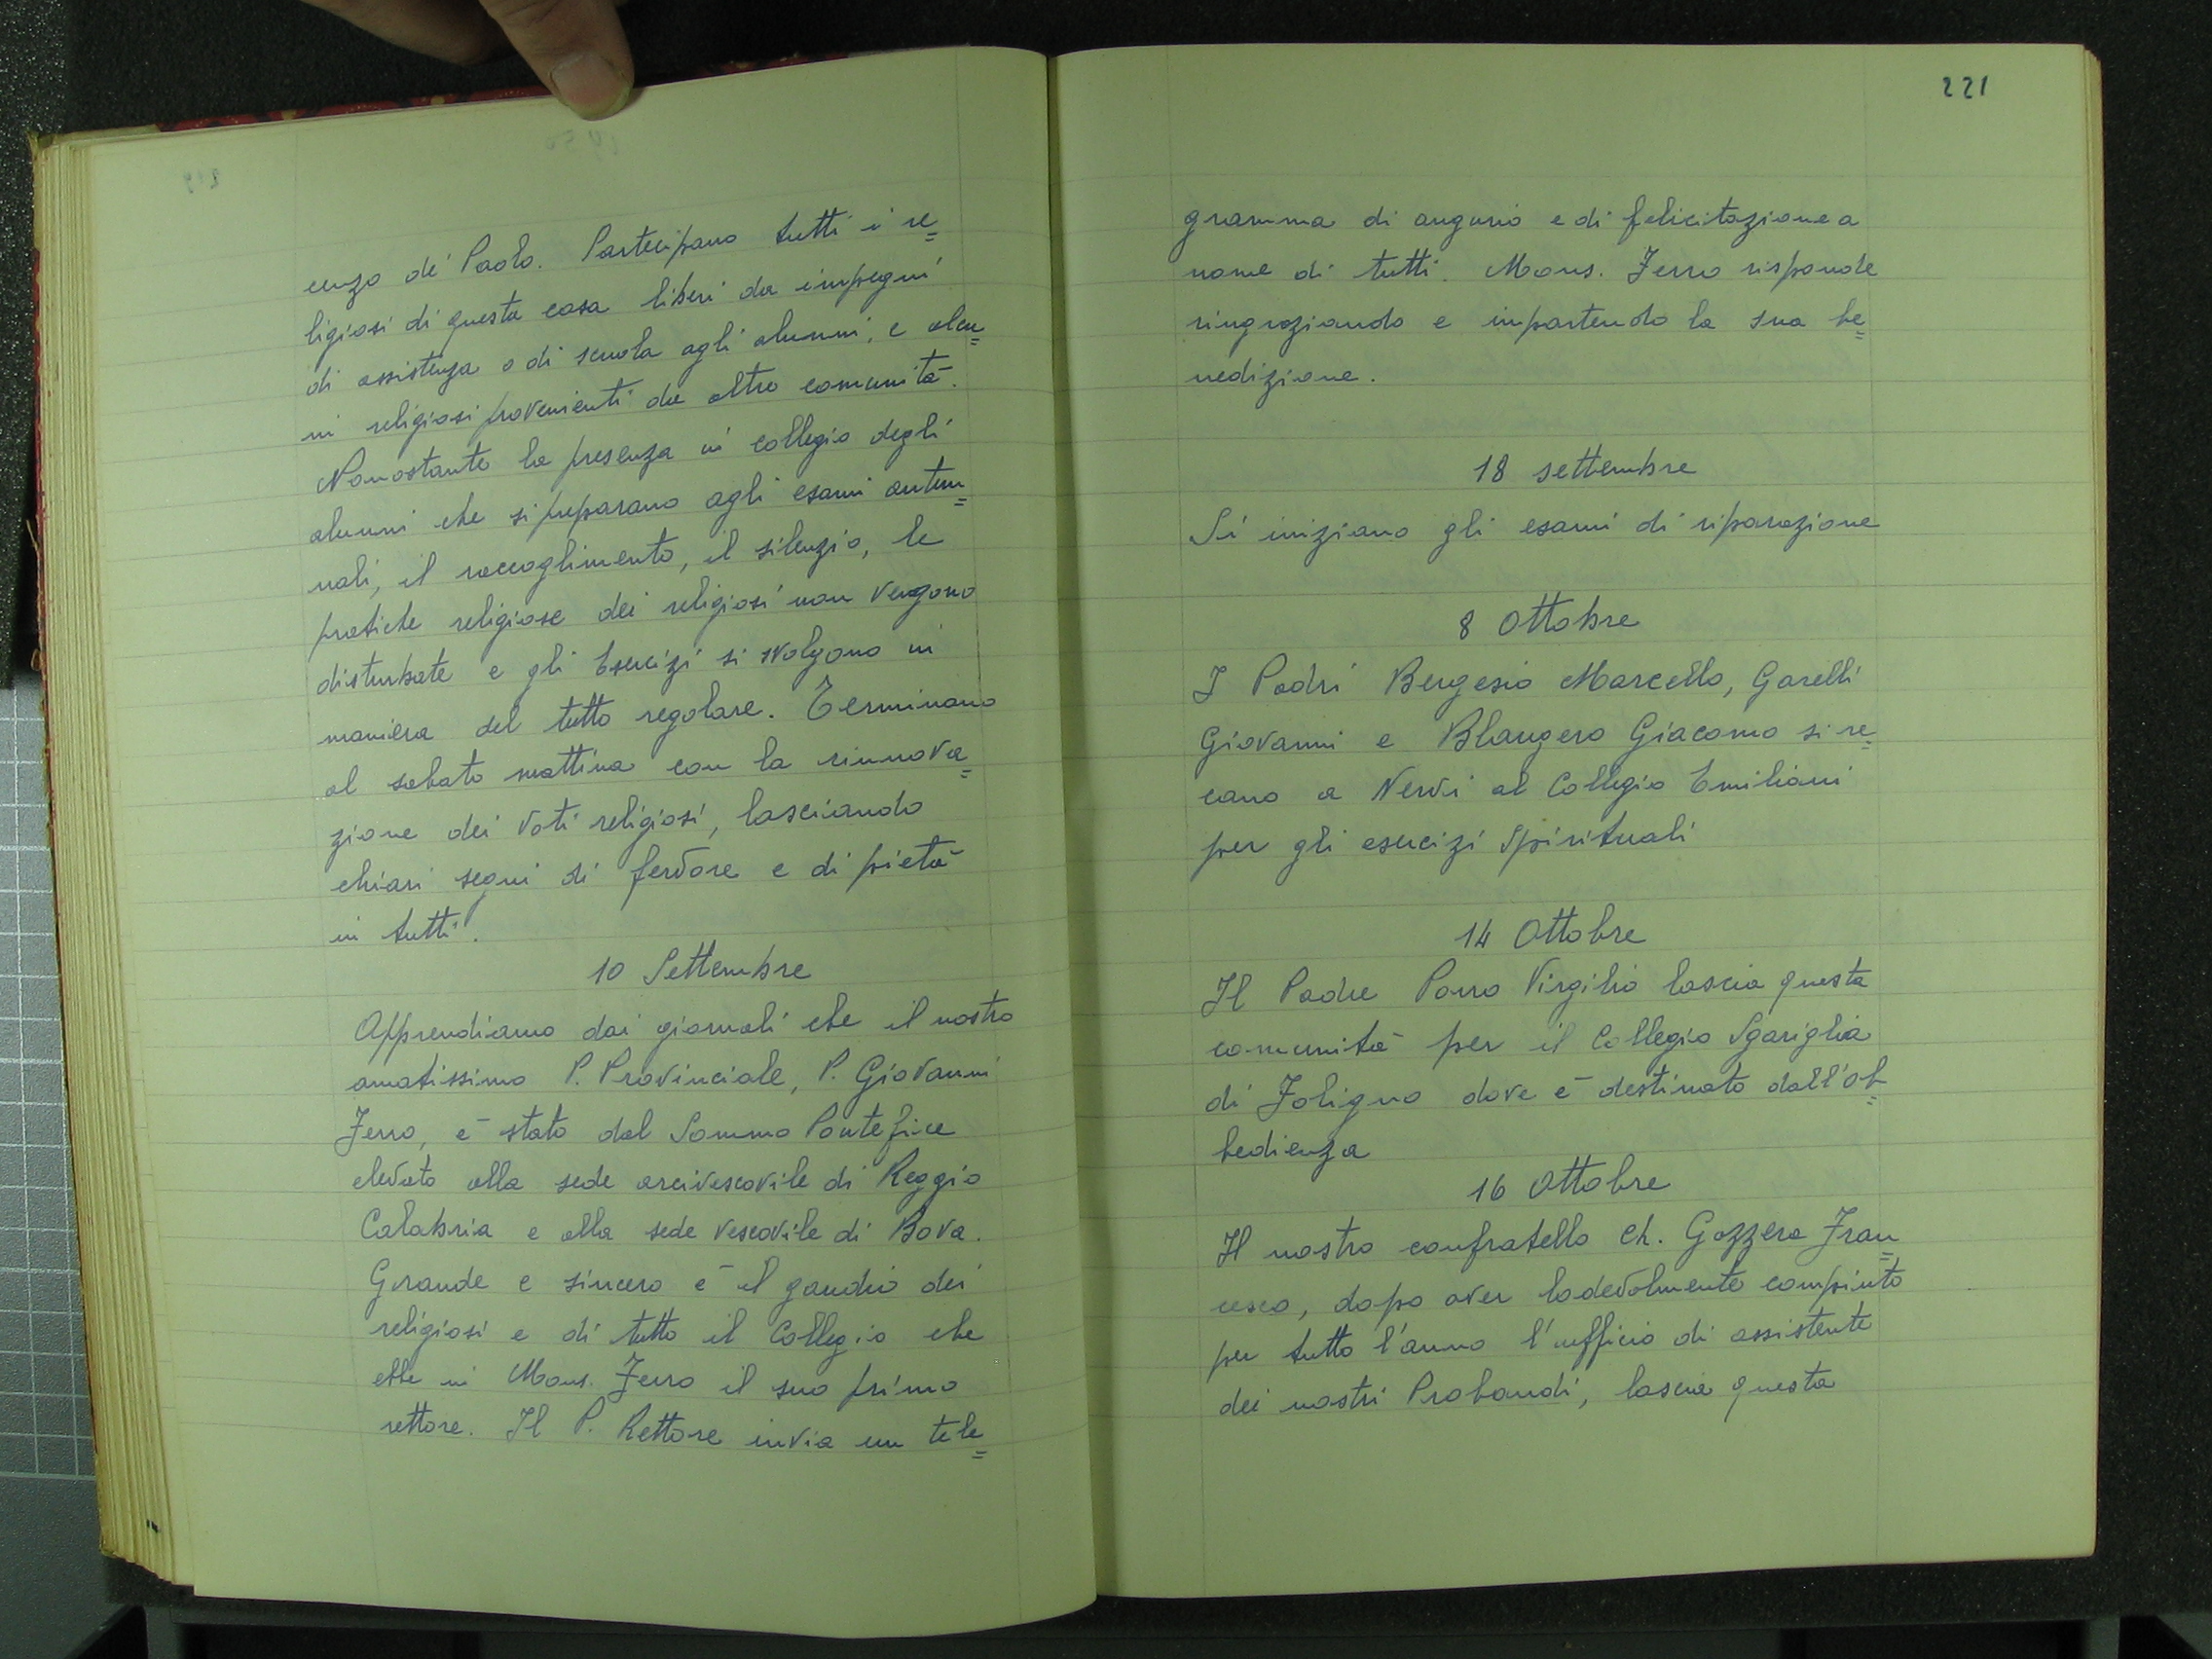 cenzo de' Paolo. Partecipano tutti i re=
ligiosi di questa casa liberi da impegni
di assistenza o di scuola agli alunni, e alcu=
ni religiosi provenienti da altre comunità.
Nonostante la presenza in collegio degli
alunni che si preparano agli esami autun=
nali, il raccoglimento, il silenzio, le
pratiche religiose dei religiosi non vengono
disturbate e gli Esercizi si svolgono in
maniera del tutto regolare. Terminano
al sabato mattina con la rinnova=
zione dei voti religiosi, lasciando
chiari segni di fervore e di pietà
in tutti.
10 Settembre
Apprendiamo dai giornali che il nostro
amatissimo P. Provinciale, P. Giovanni
Ferro, è stato dal Sommo Pontefice
elevato alla sede arcivescovile di Reggio
Calabria e alla sede vescovile di Bova.
Grande e sincero è il gaudio dei
religiosi e di tutto il Collegio che
ebbe in Mons. Ferro il suo primo
rettore. Il P. Rettore invia un tele=
221
gramma di augurio e di felicitazione a
nome di tutti. Mons. Ferro risponde
ringraziando e impartendo la sua be=
nedizione.
18 settembre
Si iniziano gli esami di riparazione
8 Ottobre
I Padri Bergesio Marcello, Garelli
Giovanni e Blangero Giacomo si re=
cano a Nervi al Collegio Emiliani
per gli esercizi Spirituali
14 Ottobre
Il Padre Porro Virgilio lascia questa
comunità per il Collegio Sgariglia
di Foligno dove è destinato dall'ob=
bedienza
16 Ottobre
Il nostro confratello Ch. Gozzera Fran=
cesco, dopo aver lodevolmente compiuto
per tutto l'anno l'ufficio di assistente
dei nostri Probandi, lascia questa